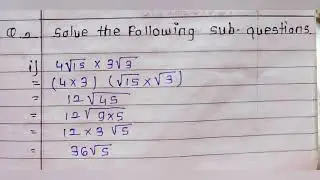 Q.2 Solve the Following sub-questions
i) 4√15 × 3√3
= (4×3) (√15 × √3)
= 12 √45
= 12 √9×5
= 12 × 3 √5
= 36√5